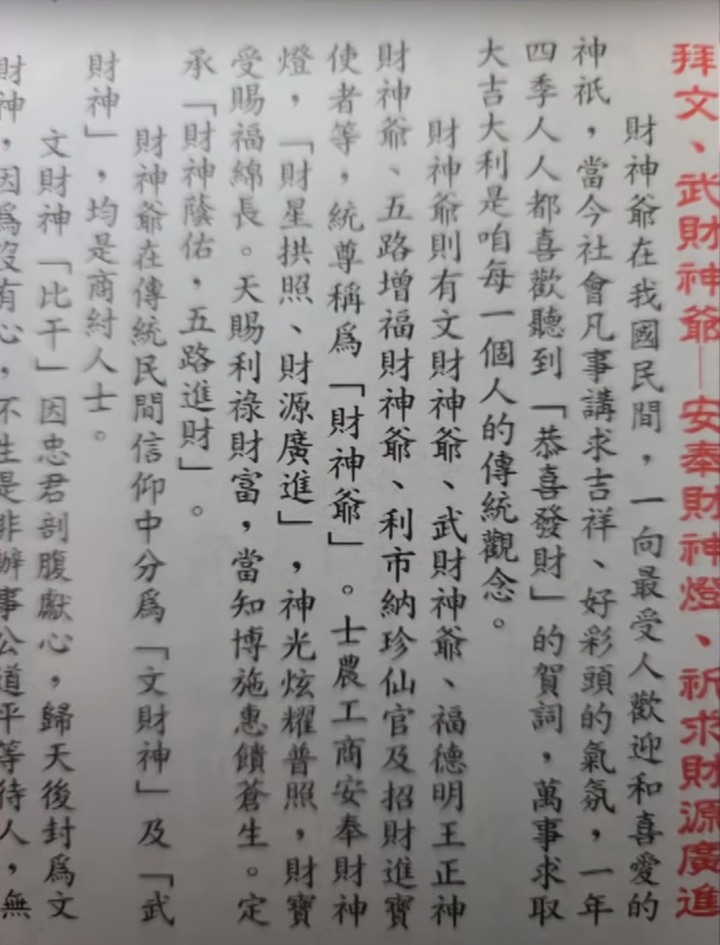 拜文、武財神爺—安奉財神燈、祈求財源廣進
財神爺在我國民間，一向最受人歡迎和喜愛的
神祇，當今社會凡事講求吉祥、好彩頭的氣氛，一年
四季人人都喜歡聽到「恭喜發財」的賀詞，萬事求取
大吉大利是咱每一個人的傳統觀念。
財神爺則有文財神爺、武財神爺、福德明王正神
財神爺、五路增福財神爺、利市納珍仙官及招財進寶
使者等，統尊稱爲「財神爺」。士農工商安奉財神
燈，「財星拱照、財源廣進」，神光炫耀普照，財寶
受賜福綿長。天賜利祿財富，當知博施惠饋蒼生。定
承「財神蔭佑，五路進財」。
財神爺在傳統民間信仰中分爲「文財神」及「武
財神」，均是商紂人士。
文財神「比干」因忠君剖腹獻心，歸天後封爲文
財神，因爲沒有心，不生是非辦事公道平等待人，無